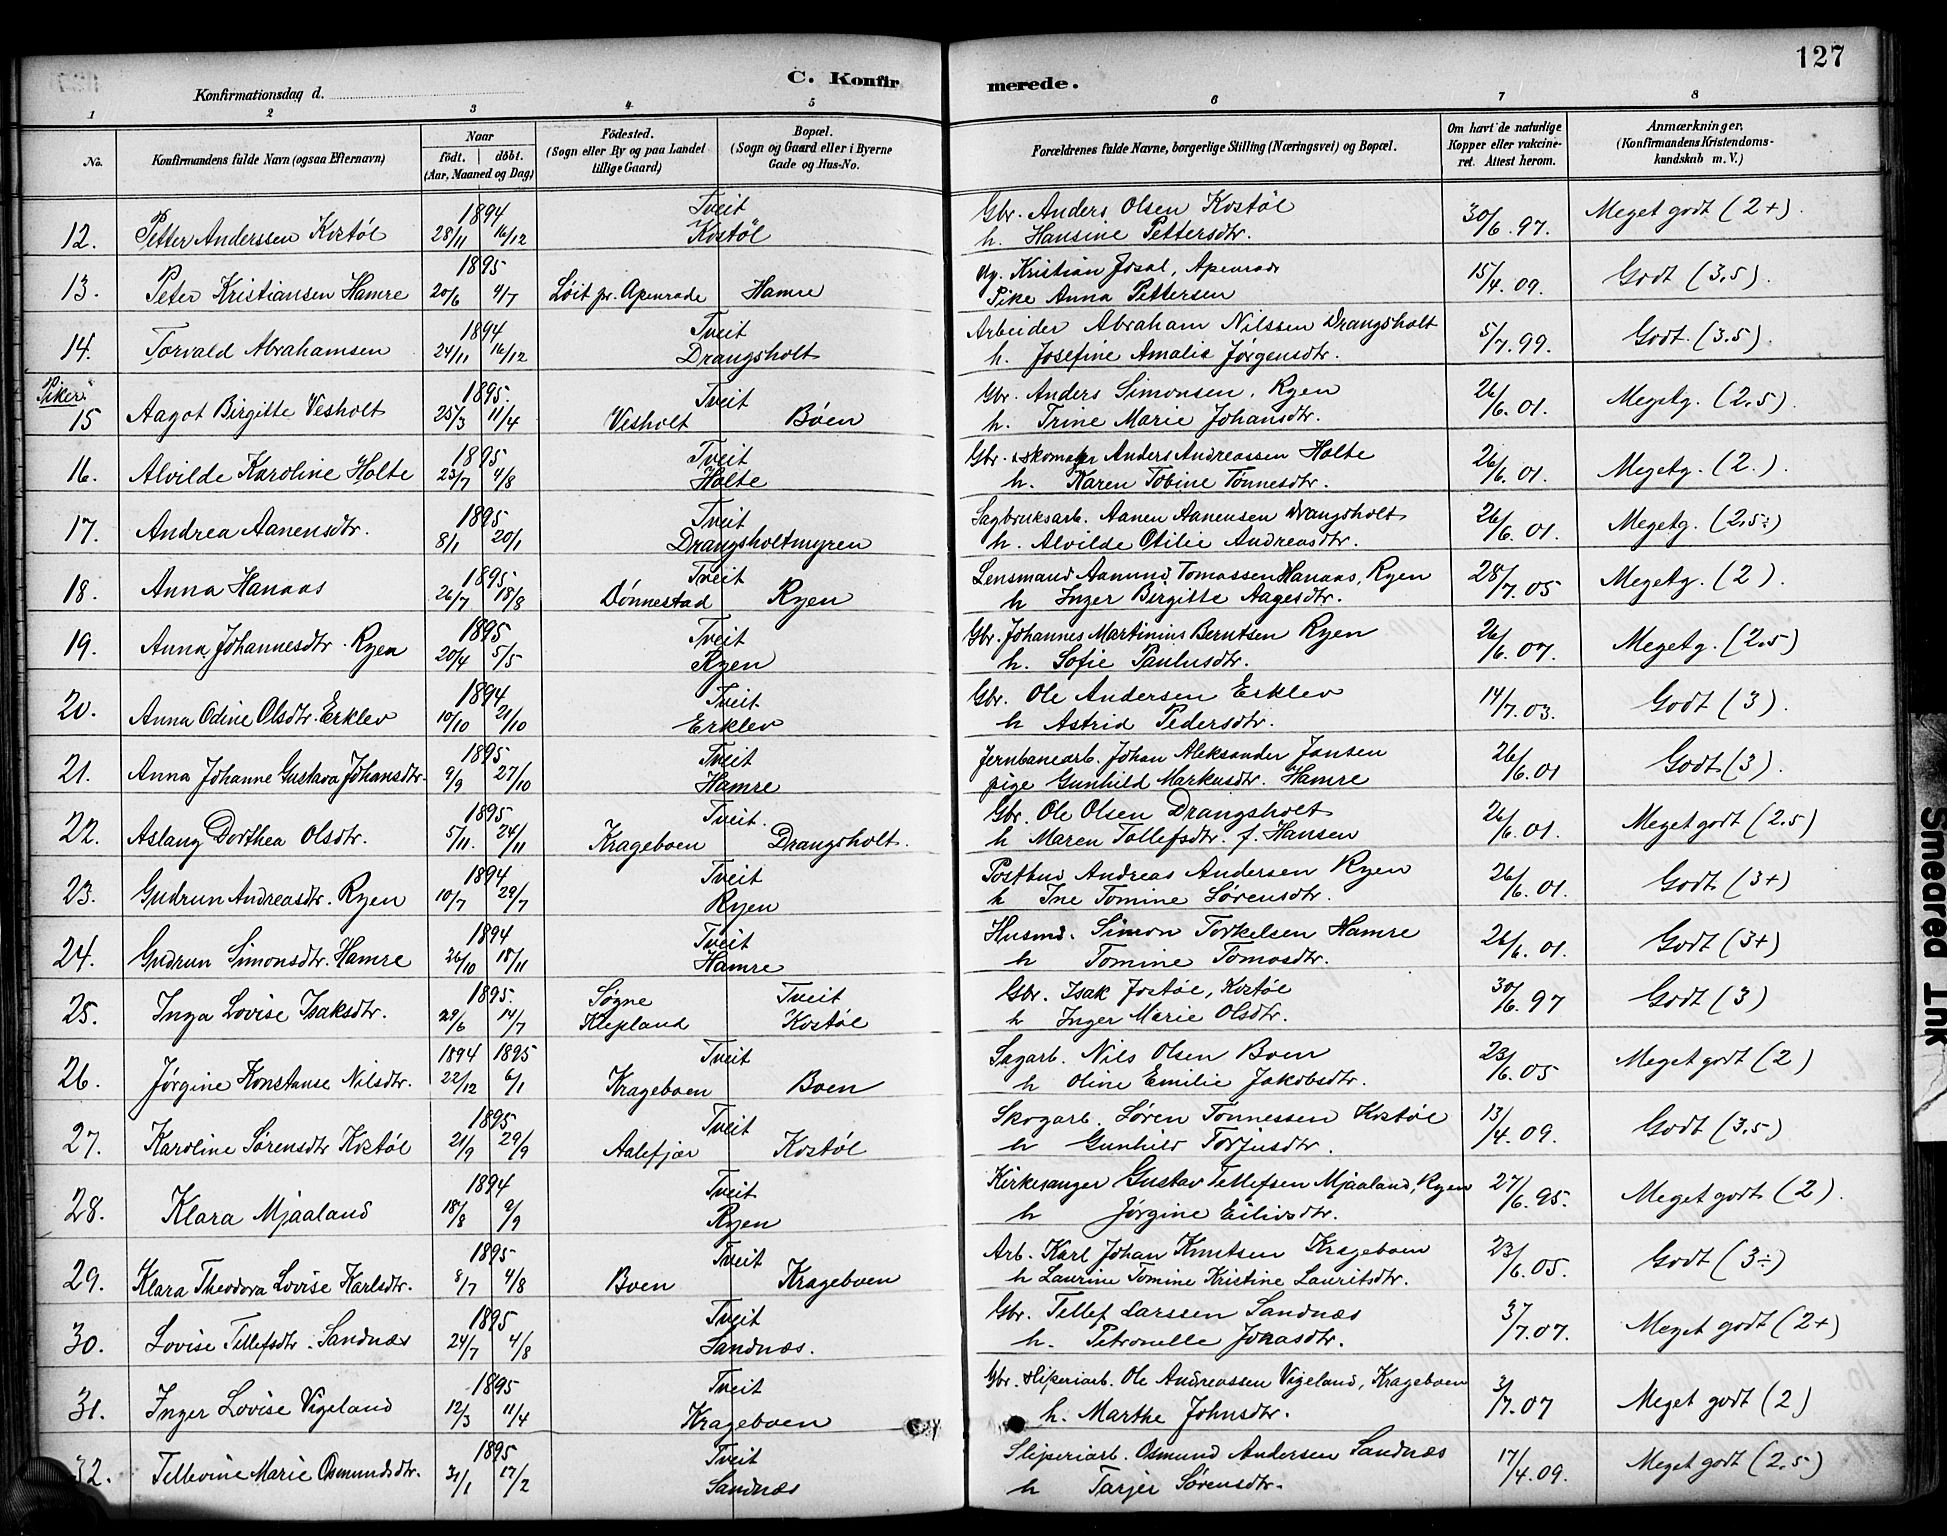 127
C. Konfirmerede.
Konfirmationsdag d.
1 2 3 4 5 6 7 8
No. Konfirmandens fulde Navn (ogsaa Efternavn) Naar født. døbt. (Aar, Maaned og Dag) Fødested. (Sogn eller By og paa Landet tillige Gaard) Bopæl. (Sogn og Gaard eller i Byerne Gade og Hus-No. Forældrenes fulde Navne, borgerlige Stilling (Næringsvei) og Bopæl. Om havt de naturlige Kopper eller vakcineret. Attest herom. Anmærkninger. (Konfirmandens Kristendomskundskab m. V.)
1894 Tveit Gbr. Anders Olsen Kostøl
12. Petter Anderssen Kostøl 28/11 16/12 Kostøl h. Hansine Pettersdtr. 30/6.97. Meget godt (2+).
1895 Kristian Josal, Apenrade
13. Peter Kristiansen Hamre 20/6 4/7 Løit pr. Apenrade Hamre Pike Anna Pettersen 15/4.09. Godt (3.5).
1894 Tveit Arbeider Abraham Nilssen Drangsholt
14. Torvald Abrahamsen 24/11 16/12 Drangsholt h. Josefine Amalie Jørgensdtr. 5/7.99. Godt. (3.5).
Piker
1895. Tveit Gbr. Anders Simonsen, Ryen
15 Aagot Birgitte Vesholt 25/3 11/4 Vesholt Bøen h. Trine Marie Johansdtr. 26/6.01. Megetg. (2.5).
1895 Tveit Gbr. & skomager Anders Andreassen Holte
16. Alvilde Karoline Holte 23/7 4/8 Holte h. Karen Tobine Tønnesdtr. 26/6.01. Megetg. (2.).
1895 Tveit Sagbruksarb. Aanen Aanensen Drangsholt
17. Andrea Aanensdtr. 8/1 20/1 Drangsholtmyren h. Alvilde Otilie Andreasdtr. 26/6.01. Megetg. (2.5÷)
1895 Tveit Lensmand Aamund Tomassen Hanaas, Ryen
18. Anna Hanaas 26/7 18/8 Dønnestad Ryen h Inger Birgitte Aagesdtr. 28/7.05 Megetg. (2).
1895 Tveit Gbr. Johannes Martinius Berntsen Ryen
19. Anna Johannesdtr. Ryen 20/4 5/5 Ryen h. Sofie Paulusdtr. 26/6.07. Megetg. (2.5)
1894 Tveit Gbr. Ole Andersen Erklev
20. Anna Odine Olsdtr. Erklev 10/10 21/10 Erklev h Astrid Pedersdtr. 14/7.03. Godt (3).
1895 Tveit Jernbanearb. Johan Aleksander Jansen
21. Anna Johanne Gustava Johansdtr. 9/9 27/10 Hamre pige Gunhild Markusdtr. Hamre 26/6.01 Godt (3).
1895 Tveit. Gbr. Ole Olsen Drangsholt
22. Aslaug Dorthea Olsdtr. 5/11. 24/11 Krageboen Drangsholt. h Maren Tollefsdtr. f. Hansen 26/6.01. Meget godt (2.5)
1894 Tveit Postbud Andreas Andersen Ryen
23. Gudrun Andreasdtr. Ryen 10/7 29/7 Ryen h Ine Tomine Sørensdtr. 26/6.01. Godt (3+)
1894 Tveit Husmd. Simon Torkelsen Hamre
24. Gudrun Simonsdtr. Hamre 26/10 18/11 Hamre h Tomine Tomasdtr. 26/6.01. Godt (3+)
1895. Søgne Tveit Gbr. Isak Jostøl, Kostøl
25. Inga Lovise Isaksdtr. 29/6 14/7 Klepland Kostøl h Inger Marie Olsdtr. 30/6.97 Godt (3)
1894 1895 Tveit Sagarb. Nils Olsen Boen
26. Jørgine Konstanse Nilsdtr. 22/12 6/1 Krageboen Boen h Oline Emilie Jakobsdtr. 23/6.05 Meget godt (2)
1895 Tveit Skogarb. Søren Tønnessen Kostøl
27. Karoline Sørensdtr Kostøl 21/9 29/9 Aalefjær Kostøl h Gunhild Torjusdtr. 13/4.09. Godt (3.5)
1894 Tveit Kirkesanger Gustav Tellefsen Mjaaland, Ryen
28. Klara Mjaaland 18/8 9/9 Ryen h Jørgine Eilivsdtr. 27/6.95. Meget godt (2).
1895 Tveit Arb. Karl Johan Knutsen Krageboen
29. Klara Theodora Lovise Karlsdtr. 8/7 4/8 Boen Krageboen h Laurine Tomine Kristine Lauritsdtr. 23/6.05. Godt (3÷)
1895 Tveit Gbr. Tellef Larssen Sandnæs
30. Lovise Tellefsdtr. Sandnæs 24/7 4/8 Sandnæs. h. Petronelle Jonasdtr. 3/7.07. Meget godt (2+)
1895 Tveit Gbr. & sliperiarb. Ole Andreassen Vigeland, Krageboen
31. Inger Lovise Vigeland 12/3 11/4 Krageboen h. Marthe Johnsdtr. 3/7.07 Meget godt (2)
1895 Tveit Sliperiarb. Osmund Andersen Sandnæs
32. Tellevine Marie Osmundsdtr. 31/1 17/2 Sandnæs h Tarjer Sørensdtr. 17/4.09. Meget godt (2.5)
Smeared Ink